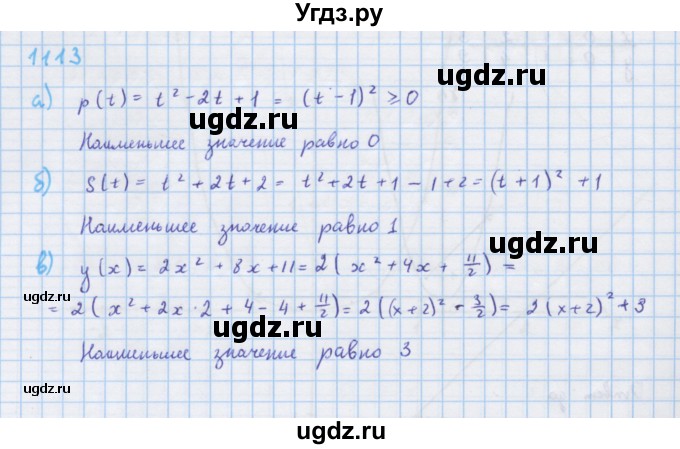 Угдз.ру
1113
ugdz.ru
а) p(t) = t² - 2t + 1 = (t - 1)² ≥ 0
ugdz.ru
Наименьшее значение равно 0
ugdz.ru
б) S(t) = t² + 2t + 2 = t² + 2t + 1 - 1 + 2 = (t + 1)² + 1
Наименьшее значение равно 1
ugdz.ru
в) y(x) = 2x² + 8x + 11 = 2(x² + 4x + 11/2) =
ugdz.ru
= 2(x² + 2x · 2 + 4 - 4 + 11/2) = 2((x + 2)² + 3/2) = 2(x + 2)² + 3
ugdz.ru
Наименьшее значение равно 3
ugdz.ru
ugdz.ru
ugdz.ru